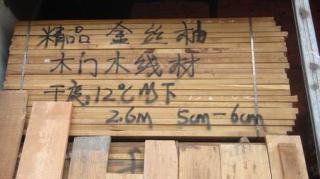 精品金丝柚
木门木线材
干底12℃以下
2.6m 5cm-6cm